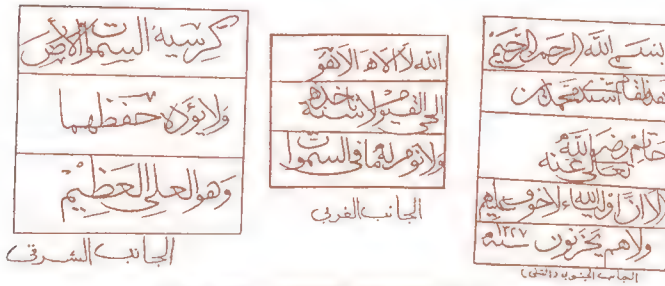 بسم الله الرحمن الرحيم
هذا مقام السيد محمد بن
حاتم رضي الله
تعالى عنه
الا ان اولياء الله لا خوف عليهم
ولا هم يحزنون سنة ١٢٢٧
الجانب الجنوبي
الله لا اله الا هو
الحي القيوم لا تأخذه سنة
ولا نوم له ما في السموات
الجانب الغربي
كرسيه السموات والارض
ولا يؤده حفظهما
وهو العلي العظيم
الجانب الشرقي